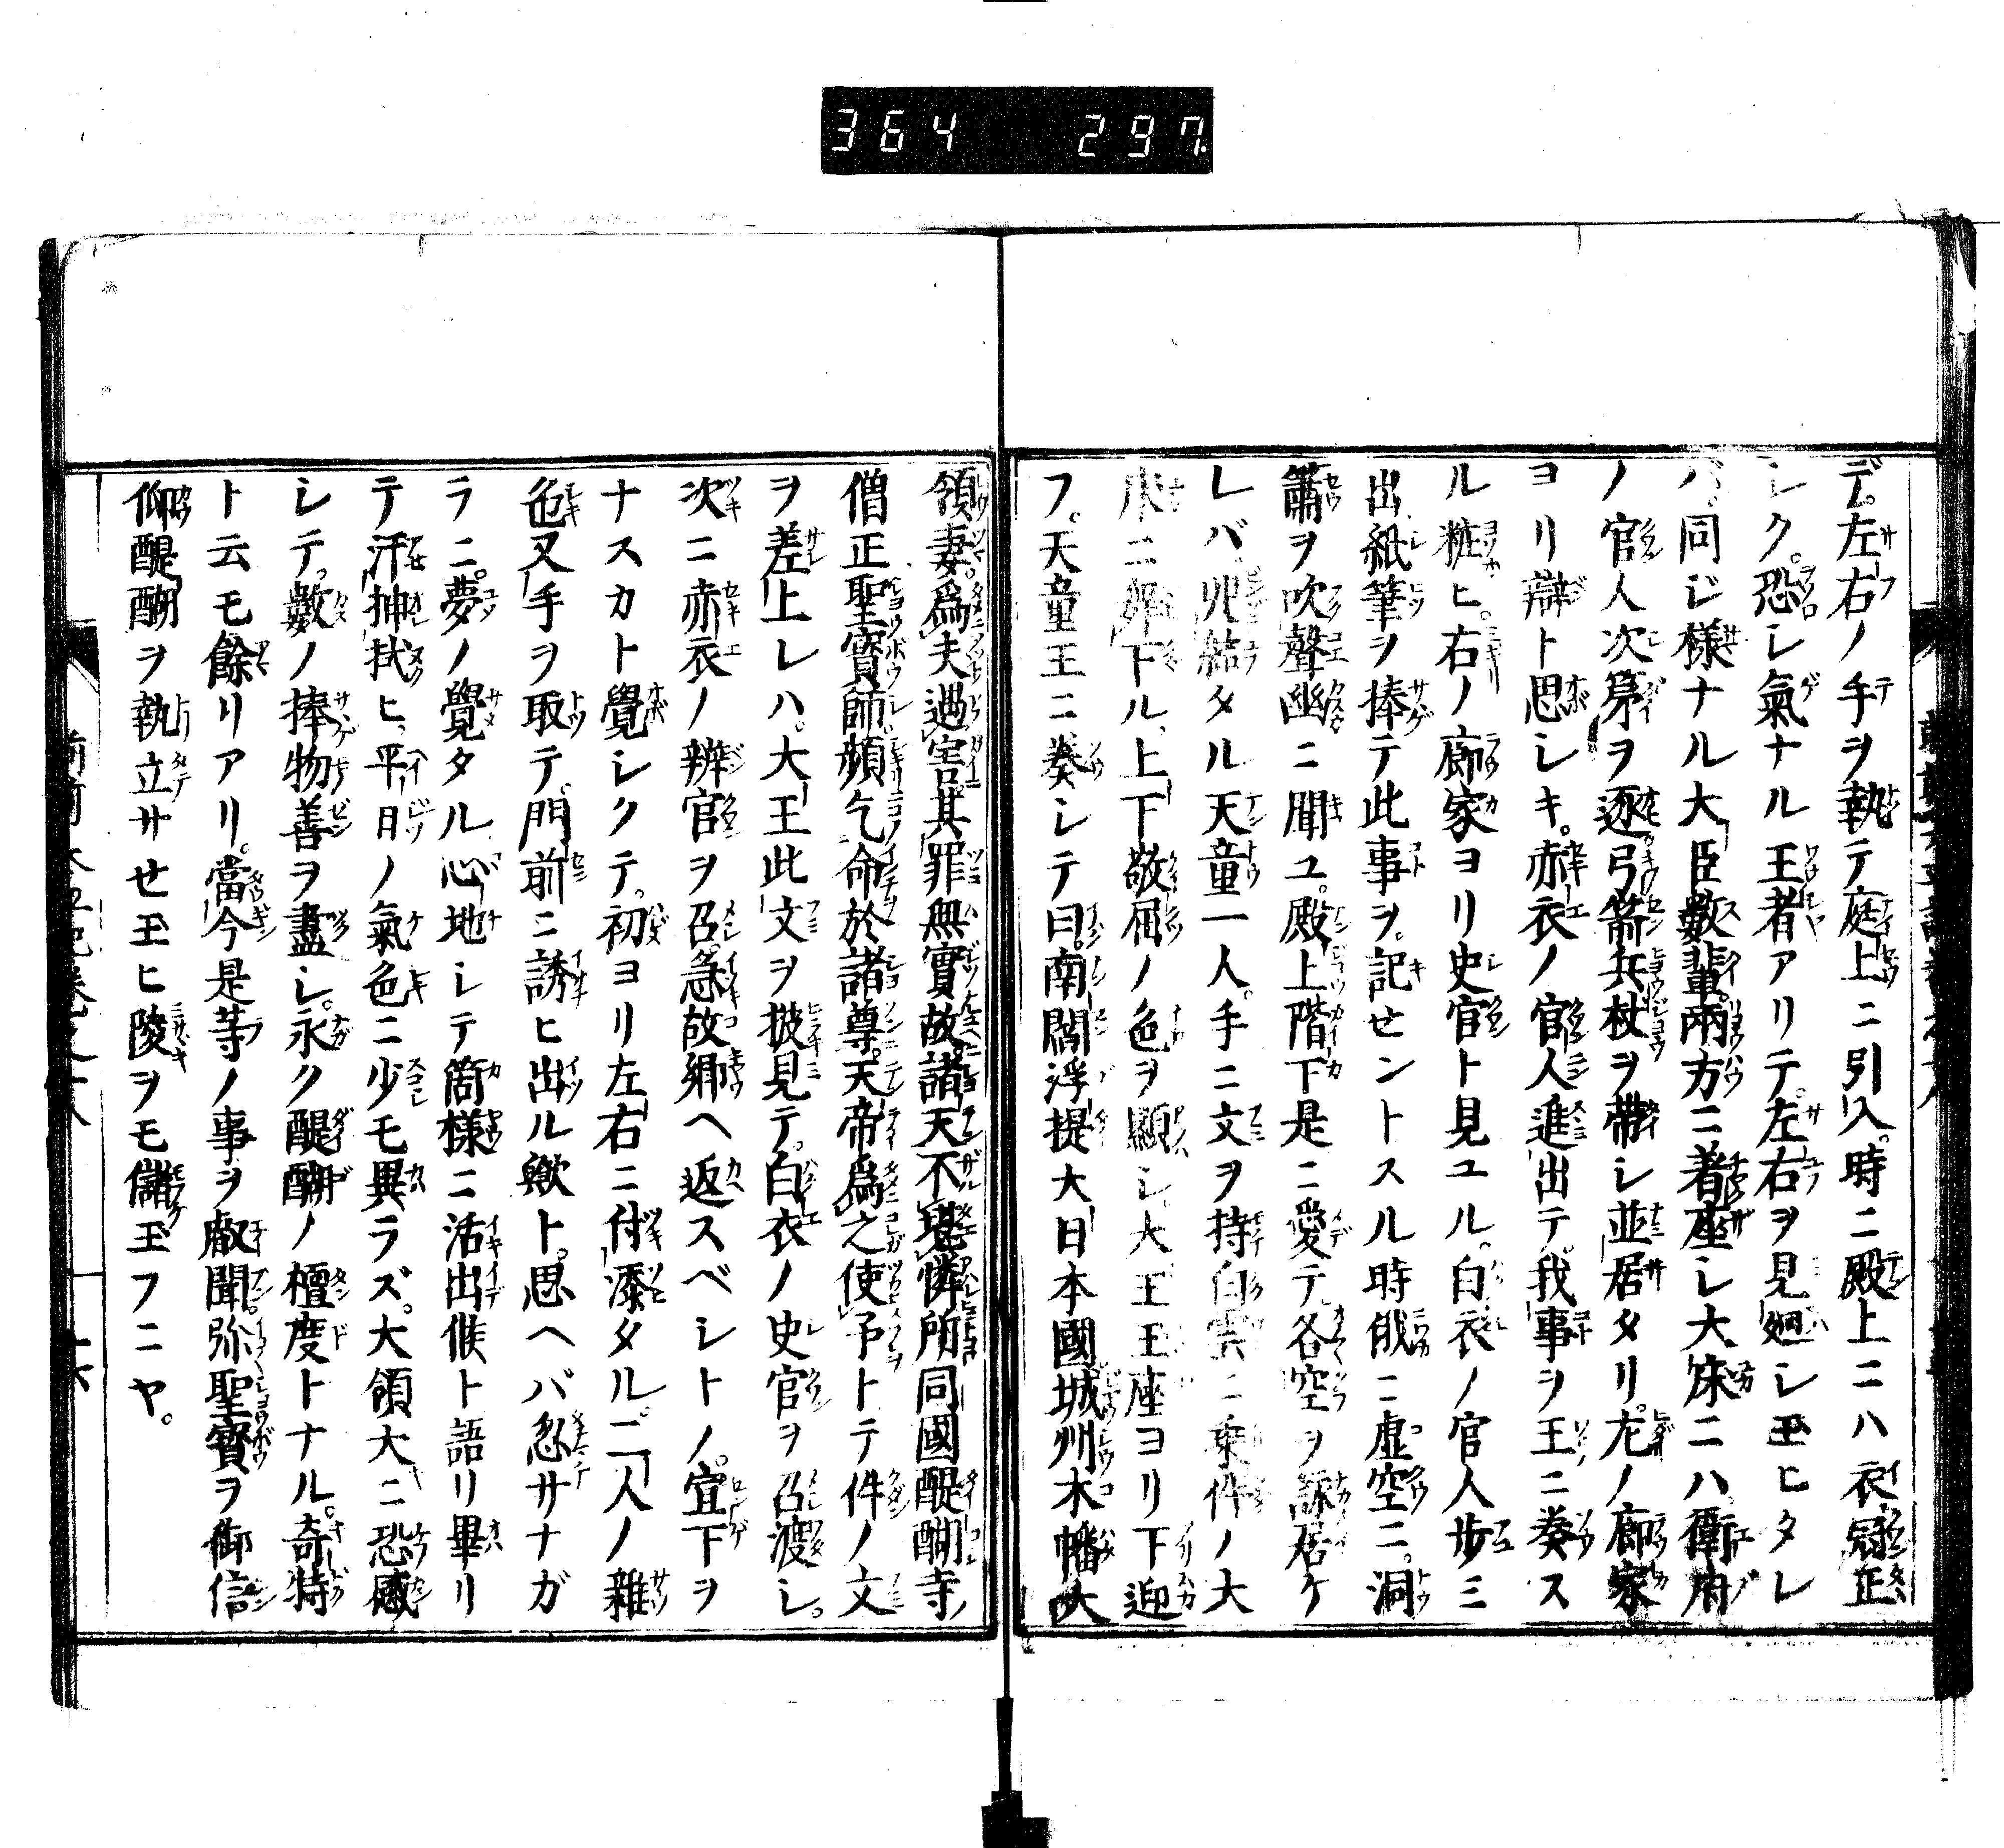 364 297
デ。左右ノ手ヲ執テ庭上ニ引入。時ニ殿上ニハ衣冠正
シク。恐シ氣ナル王者アリテ。左右ヲ見廻シ玉ヒタレ
バ。同ジ樣ナル大臣數輩。兩方ニ着座シ大床ニハ。衛府
ノ官人次第ヲ逐弓箭兵杖ヲ帶シ並居タリ。左ノ廊家
ヨリ辯ト思シキ。赤衣ノ官人進出テ。我事ヲ王ニ奏ス
ル粧ヒ。右ノ廊家ヨリ史官ト見ユル。白衣ノ官人歩ミ
出紙筆ヲ捧テ此事ヲ。記セントスル時俄ニ虚空ニ。洞
簫ヲ吹聲幽ニ聞ユ。殿上階下是ニ愛テ。各空ヲ詠居ケ
レバ。丱結タル天童一人。手ニ文ヲ持白雲ニ乘件ノ大
床ニ舞下ル。上下敬屈ノ色ヲ顯シ。大王王座ヨリ下迎
フ。天童王ニ奏シテ曰。南閻浮提大日本國城州木幡大
領妻。爲夫遇害。其罪無實故。諸天不堪憐所同國醍醐寺ノ
僧正聖寶師頻乞命於諸尊。天帝爲之使予トテ件ノ文
ヲ差上レハ。大王此文ヲ披見テ。白衣ノ史官ヲ召渡シ。
次ニ赤衣ノ辨官ヲ召。急故郷ヘ返スベシトノ。宣下ヲ
ナスカト覺シクテ。初ヨリ左右ニ付漆タル。二人ノ雜
色又手ヲ取テ。門前ニ誘ヒ出ル歟ト。思ヘバ忽サナガ
ラニ。夢ノ覺タル心地シテ箇樣ニ活出候ト語リ畢リ
テ汗抻拭ヒ。平日ノ氣色ニ少モ異ラズ。大領大ニ恐感
シテ。數ノ捧物善ヲ盡シ。永ク醍醐ノ檀度トナル。奇特
ト云モ餘リアリ。當今是等ノ事ヲ叡聞。弥聖寳ヲ御信
仰醍醐ヲ執立サセ玉ヒ陵ヲモ儲玉フニヤ。